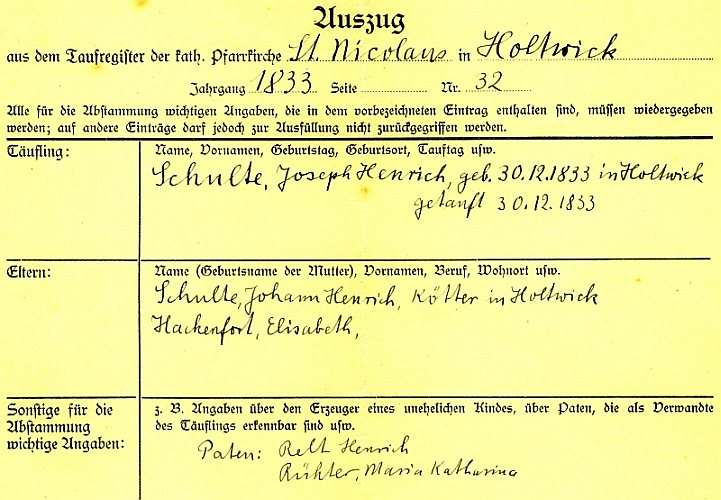 Auszug
aus dem Taufregister der kath. Pfarrkirche St. Nicolaus in Holtwick
Jahrgang 1833 Seite Nr. 32
Alle für die Abstammung wichtigen Angaben, die in dem vorbezeichneten Eintrag enthalten sind, müssen wiedergegeben
werden; auf andere Einträge darf jedoch zur Ausfüllung nicht zurückgegriffen werden.
Täufling:
Name, Vornamen, Geburtstag, Geburtsort, Tauftag usw.
Schulte, Joseph Henrich, geb. 30.12.1833 in Holtwick
getauft 30.12.1833
Eltern:
Name (Geburtsname der Mutter), Vornamen, Beruf, Wohnort usw.
Schulte, Johann Henrich, Kötter in Holtwick
Hackenfort, Elisabeth,
Sonstige für die
Abstammung
wichtige Angaben:
z. B. Angaben über den Erzeuger eines unehelichen Kindes, über Paten, die als Verwandte
des Täuflings erkennbar sind usw.
Paten: Henrich
Maria Katharina